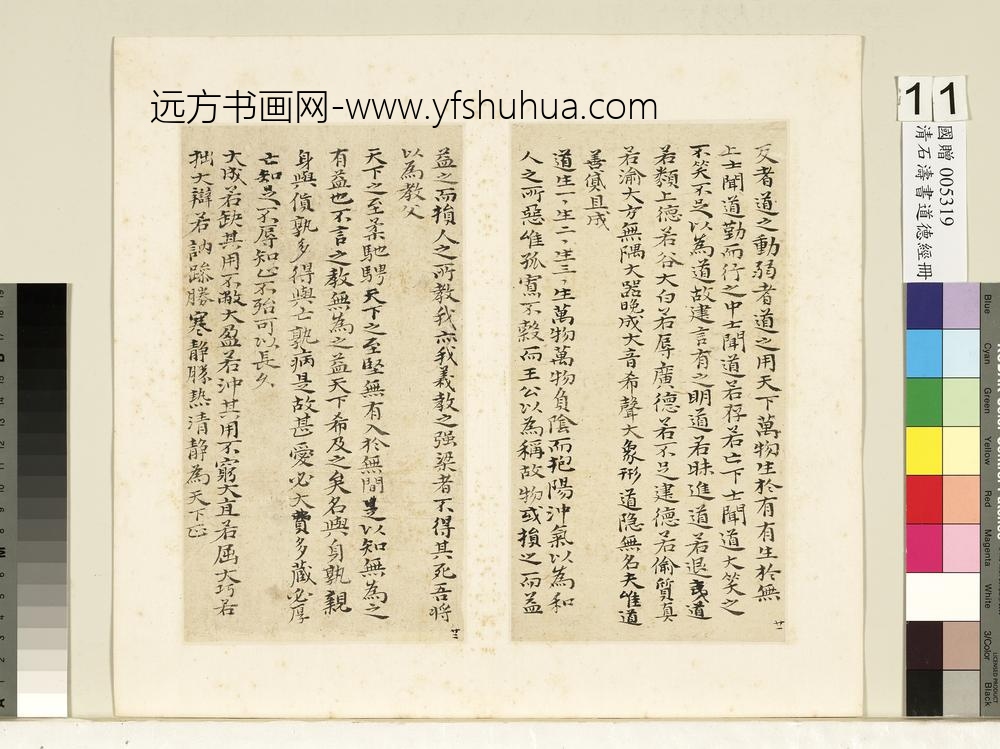 远方书画网-www.yfshuhua.com
反者道之動弱者道之用天下萬物生於有有生於無
上士聞道勤而行之中士聞道若存若亡下士聞道大笑之
不笑不足以為道故建言有之明道若昧進道若退夷道
若纇上德若谷大白若辱廣德若不足建德若偷質真
若渝大方無隅大器晚成大音希聲大象無形道隱無名夫唯道
善貸且成
道生一生二生三生萬物萬物負陰而抱陽沖氣以為和
人之所惡惟孤寡不穀而王公以為稱故物或損之而益
廿一
益之而損人之所教我亦我義教之强梁者不得其死吾將
以為教父
天下之至柔馳騁天下之至堅無有入於無間是以知無為之
有益也不言之教無為之益天下希及之矣名與身孰親
身與貨孰多得與亡孰病是故甚愛必大費多藏必厚
亡知足不辱知止不殆可以長久
大成若缺其用不敝大盈若沖其用不窮大直若屈大巧若
拙大辯若訥躁勝寒靜勝熱清靜為天下正
廿二
11
國贈 005319
清石濤書道德經冊
Blue
Cyan
Green
Yellow
Red
Magenta
White
3/Color
Black